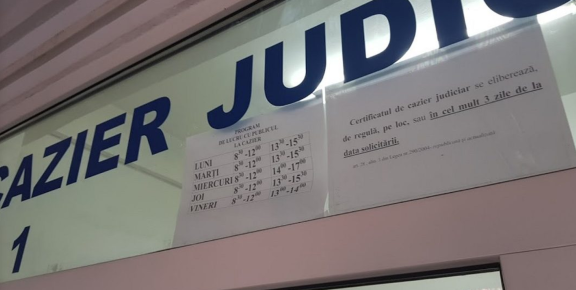 CAZIER JUDIC
1
PROGRAM
DE LUCRU CU PUBLICUL
LA CAZIER
LUNI 8³⁰-12⁰⁰ 13³⁰-15³⁰
MARȚI 8³⁰-12⁰⁰ 13³⁰-15³⁰
MIERCURI 8³⁰-12⁰⁰ 14⁰⁰-17⁰⁰
JOI 8³⁰-12⁰⁰ 13³⁰-15³⁰
VINERI 8³⁰-12⁰⁰ 13⁰⁰-14⁰⁰
Certificatul de cazier judiciar se eliberează,
de regulă, pe loc, sau în cel mult 3 zile de la
data solicitării.